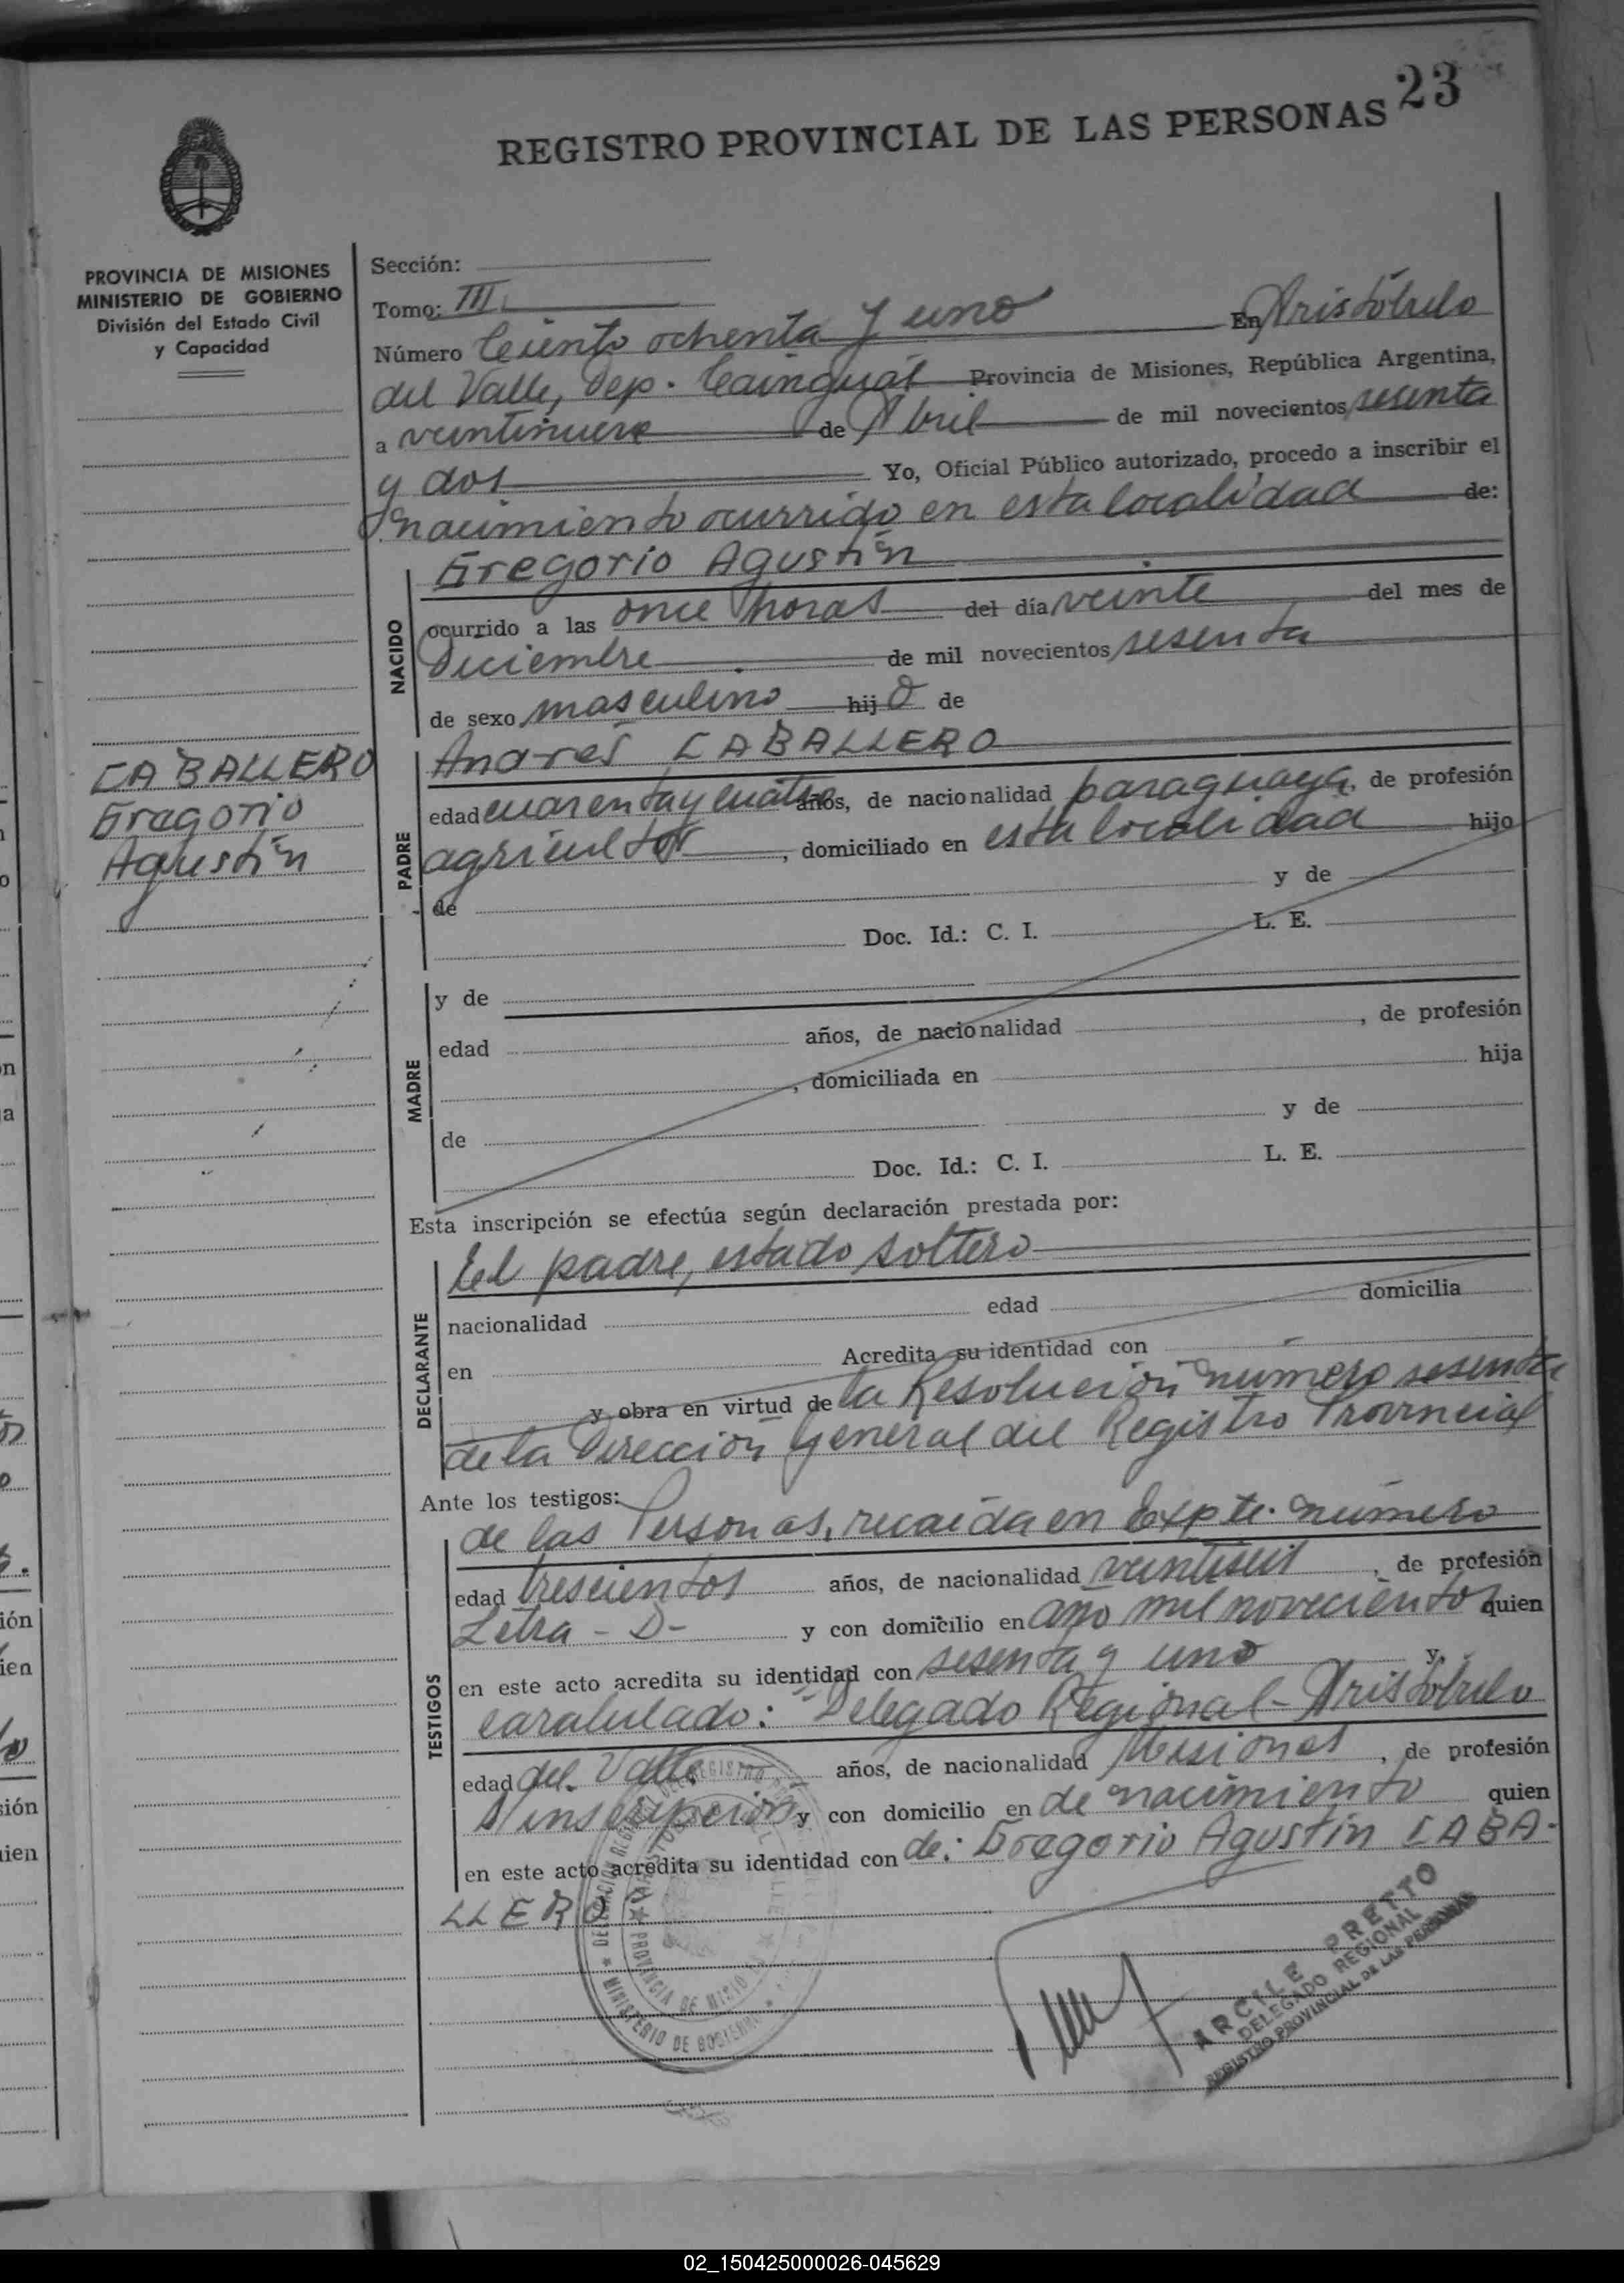 23
REGISTRO PROVINCIAL DE LAS PERSONAS
PROVINCIA DE MISIONES
MINISTERIO DE GOBIERNO
División del Estado Civil
y Capacidad
Sección:
Tomo: III
Número Ciento ochenta y uno En Aristóbulo
del Valle, Dep. Cainguás Provincia de Misiones, República Argentina,
a veintinueve de Abril de mil novecientos sesenta
y dos Yo, Oficial Público autorizado, procedo a inscribir el
nacimiento ocurrido en esta localidad de:
NACIDO
Gregorio Agustín
ocurrido a las once horas del día veinte del mes de
Diciembre de mil novecientos sesenta
de sexo masculino hijo de
CABALLERO
Gregorio
Agustín
PADRE
Andrés CABALLERO
edad cuarenta y cuatro años, de nacionalidad paraguaya, de profesión
agricultor, domiciliado en esta localidad hijo
de y de
Doc. Id.: C. I. L. E.
MADRE
y de
edad años, de nacionalidad , de profesión
, domiciliada en hija
de y de
Doc. Id.: C. I. L. E.
Esta inscripción se efectúa según declaración prestada por:
DECLARANTE
El padre, estado soltero
nacionalidad edad domicilia
en Acredita su identidad con
y obra en virtud de la Resolución número sesenta
de la Dirección General del Registro Provincial
Ante los testigos:
TESTIGOS
de las Personas, recaída en Expte. número
edad trescientos años, de nacionalidad veintiseis, de profesión
Letra - D- y con domicilio en año mil novecientos quien
en este acto acredita su identidad con sesenta y uno y
caratulado: Delegado Regional - Aristóbulo
edad del Valle años, de nacionalidad Misiones, de profesión
S/ inscripción y con domicilio en de nacimiento quien
en este acto acredita su identidad con de: Gregorio Agustín CABA-
LLERO
MINISTERIO DE GOBIERNO
PROVINCIA DE MISIONES
ARCILE PRETTO
DELEGADO REGIONAL
REGISTRO PROVINCIAL DE LAS PERSONAS
02_150425000026-045629